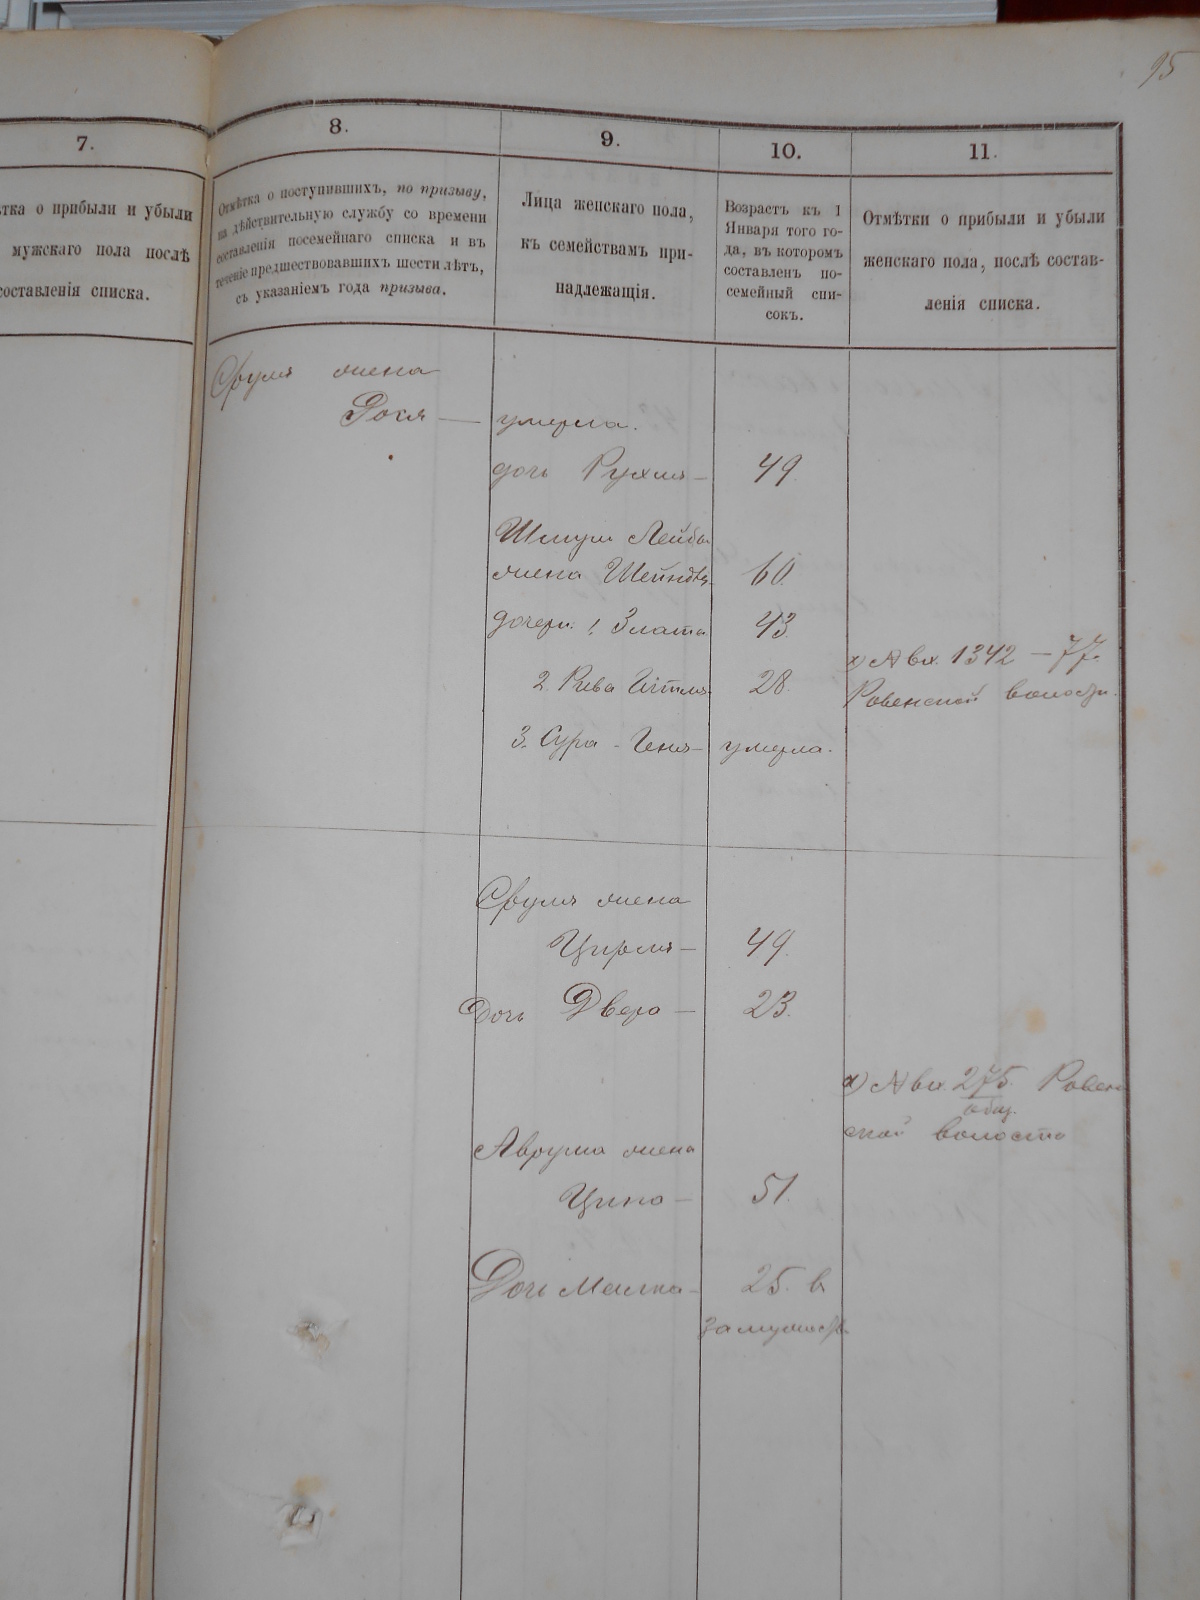 95
7.
8.
9.
10.
11.
тка о прибыли и убыли
мужскаго пола послѣ
составленія списка.
Отмѣтка о поступившихъ, по призыву,
на дѣйствительную службу со времени
составленія посемейнаго списка и въ
теченіе предшествовавшихъ шести лѣтъ,
съ указаніемъ года призыва.
Лица женскаго пола,
къ семействамъ при-
надлежащія.
Возрастъ къ 1
Января того го-
да, въ которомъ
составленъ по-
семейный спи-
сокъ.
Отмѣтки о прибыли и убыли
женскаго пола, послѣ состав-
ленія списка.
Сруля жена
Рося — умерла.
дочь Рухля — 49
Шмуля Лейбы
жена Шейндля 60.
дочери: 1. Злата 43.
2. Рива Итля 28.
3. Сура - Геня — умерла.
х) № вх. 1342 — 77.
Ровенской волости.
Сруля жена
Цирля — 49.
Дочь Двера — 23.
х) № вх. 275. Ровен
общ.
ской волости
Аврума жена
Цина — 51.
Дочь Малка — 25. в
замужеств.